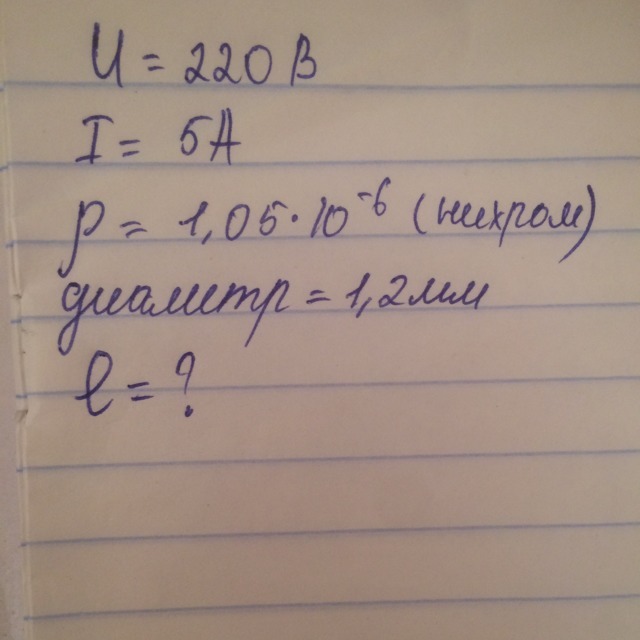 U = 220 В
I = 5А
ρ = 1,05·10⁻⁶ (нихром)
диаметр = 1,2мм
l = ?